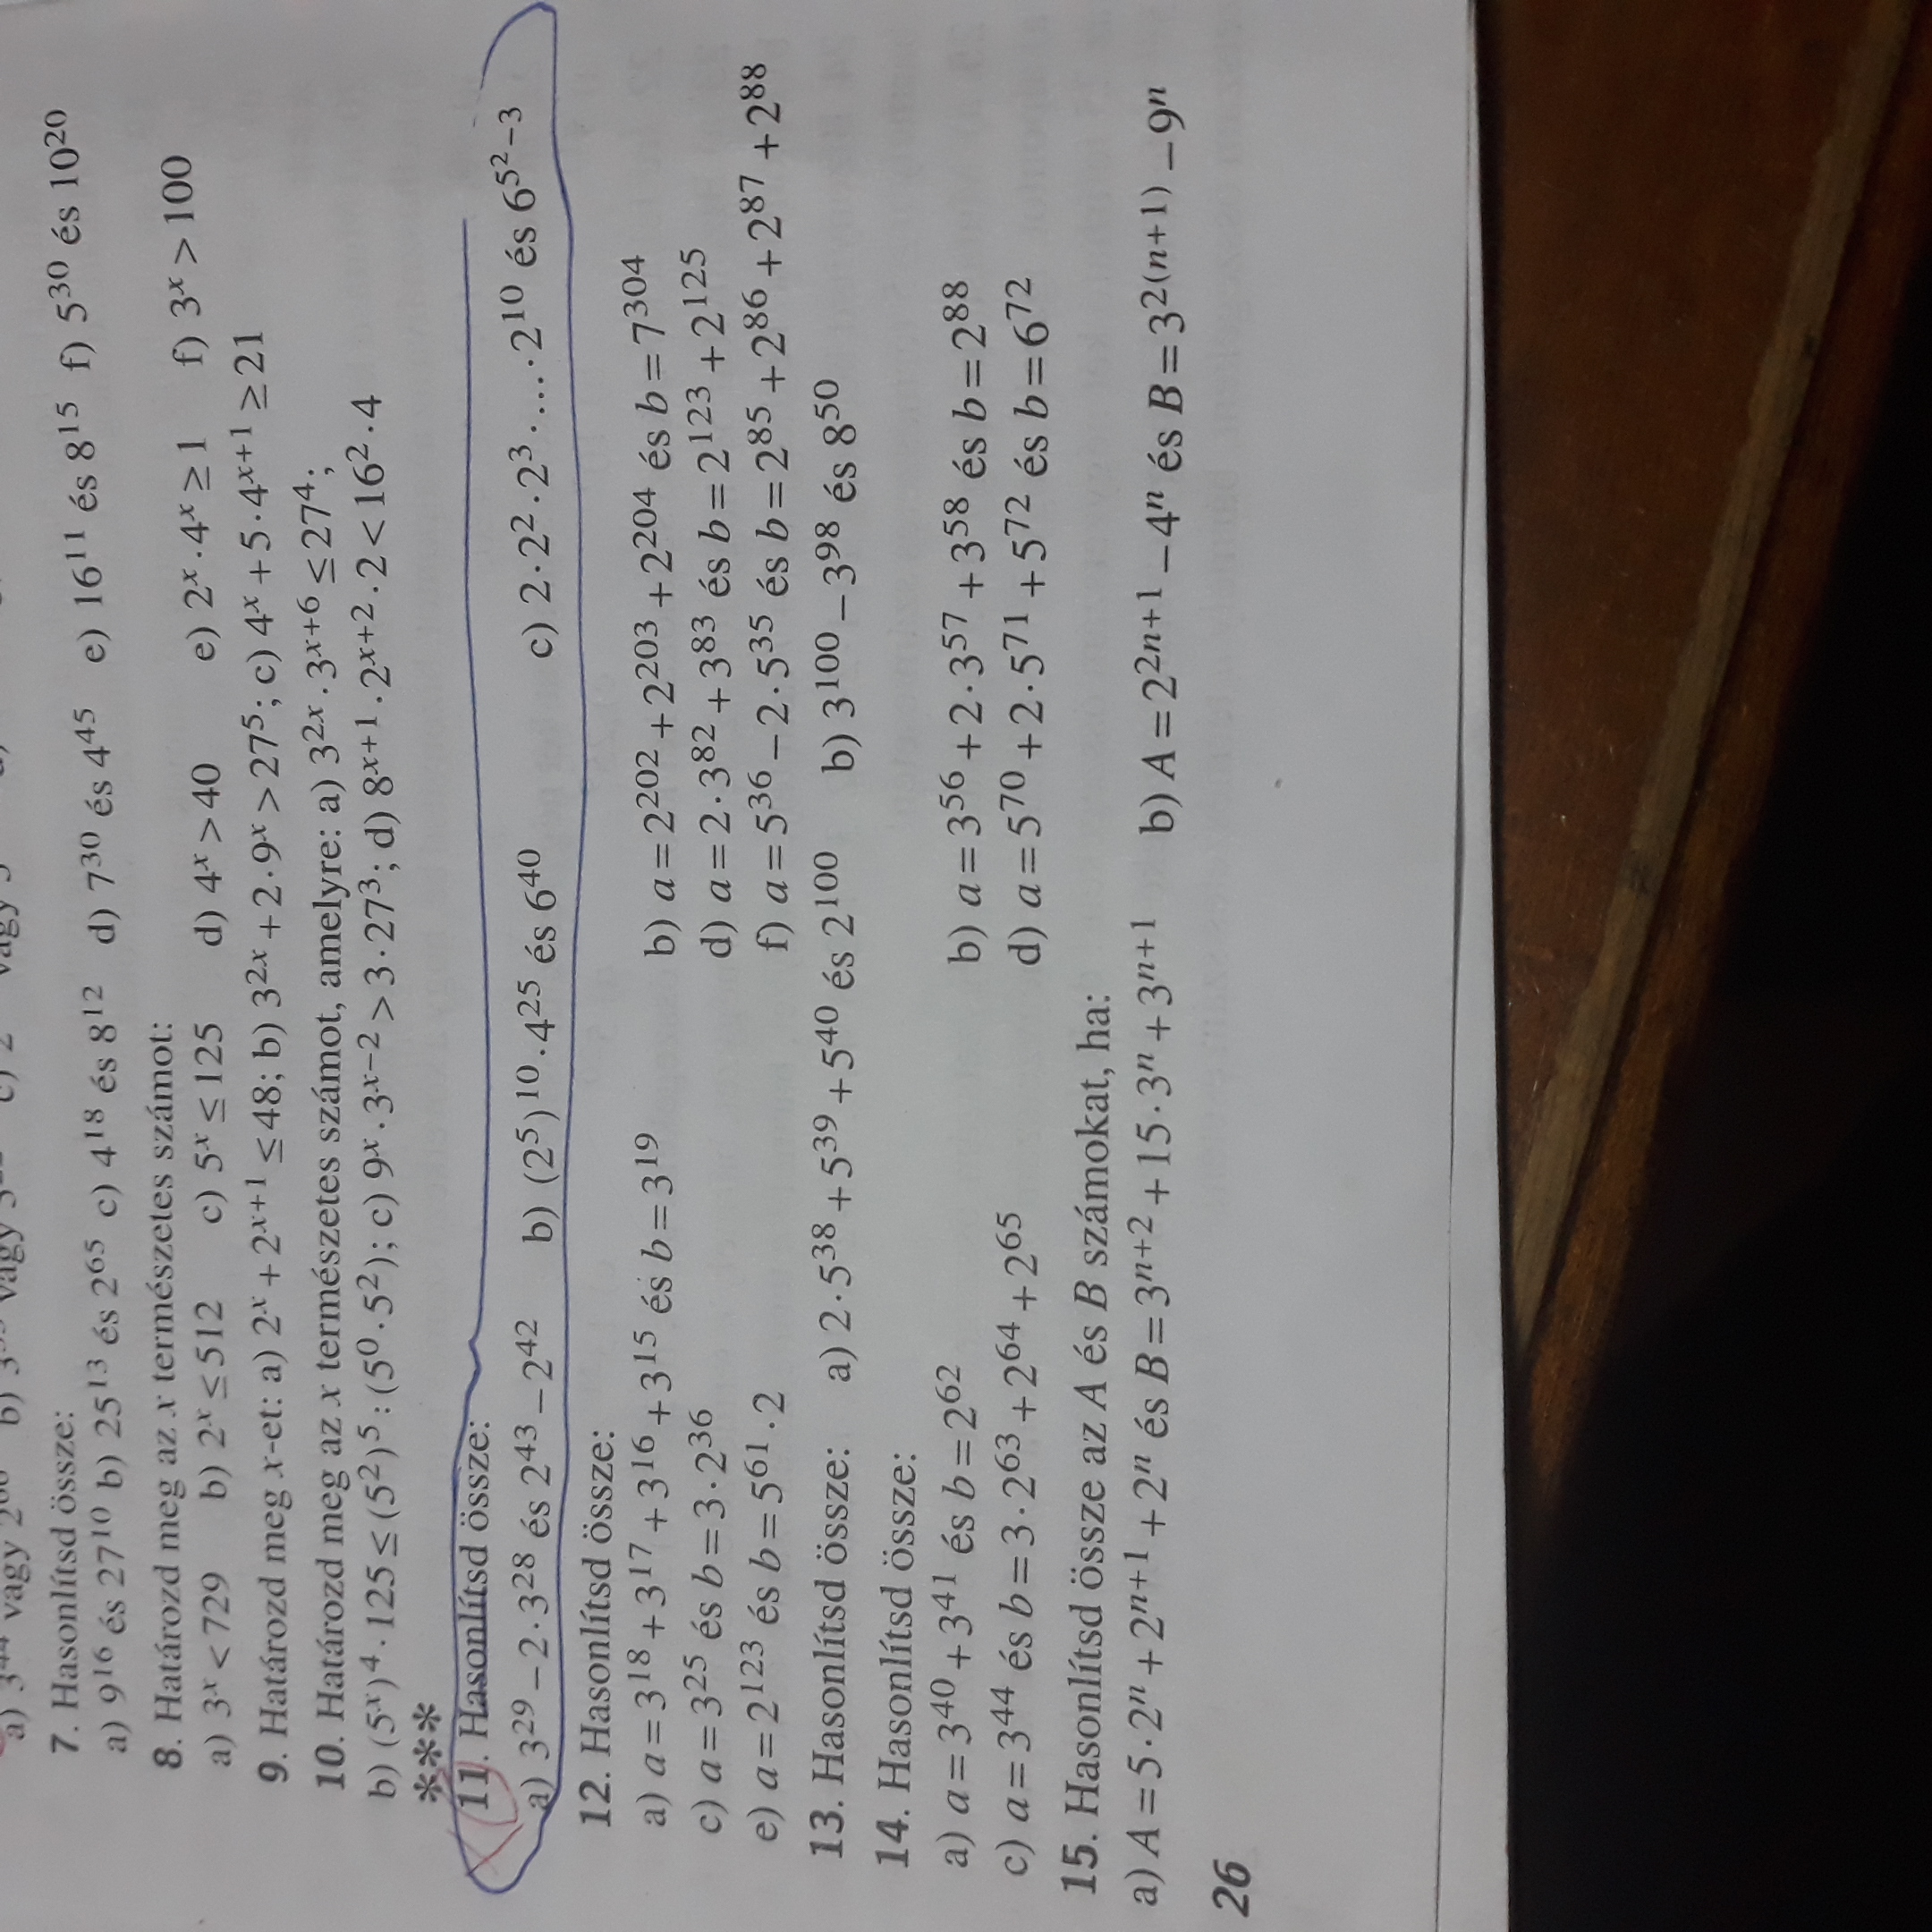 a) 3⁴⁴ vagy 2
7. Hasonlítsd össze:
a) 9¹⁶ és 27¹⁰ b) 25¹³ és 2⁶⁵ c) 4¹⁸ és 8¹² d) 7³⁰ és 4⁴⁵ e) 16¹¹ és 8¹⁵ f) 5³⁰ és 10²⁰
8. Határozd meg az x természetes számot:
a) 3ˣ < 729 b) 2ˣ ≤ 512 c) 5ˣ ≤ 125 d) 4ˣ > 40 e) 2ˣ · 4ˣ ≥ 1 f) 3ˣ > 100
9. Határozd meg x-et: a) 2ˣ + 2ˣ⁺¹ ≤ 48; b) 3²ˣ + 2 · 9ˣ > 27⁵; c) 4ˣ + 5 · 4ˣ⁺¹ ≥ 21
10. Határozd meg az x természetes számot, amelyre: a) 3²ˣ · 3ˣ⁺⁶ ≤ 27⁴;
b) (5ˣ)⁴ · 125 ≤ (5²)⁵ : (5⁰ · 5²); c) 9ˣ · 3ˣ⁻² > 3 · 27³; d) 8ˣ⁺¹ · 2ˣ⁺² · 2 < 16² · 4
***
11. Hasonlítsd össze:
a) 3²⁹ − 2 · 3²⁸ és 2⁴³ − 2⁴² b) (2⁵)¹⁰ · 4²⁵ és 6⁴⁰ c) 2 · 2² · 2³ · … · 2¹⁰ és 6^(5²−3)
12. Hasonlítsd össze:
a) a = 3¹⁸ + 3¹⁷ + 3¹⁶ + 3¹⁵ és b = 3¹⁹ b) a = 2²⁰² + 2²⁰³ + 2²⁰⁴ és b = 7³⁰⁴
c) a = 3²⁵ és b = 3 · 2³⁶ d) a = 2 · 3⁸² + 3⁸³ és b = 2¹²³ + 2¹²⁵
e) a = 2¹²³ és b = 5⁶¹ · 2 f) a = 5³⁶ − 2 · 5³⁵ és b = 2⁸⁵ + 2⁸⁶ + 2⁸⁷ + 2⁸⁸
13. Hasonlítsd össze: a) 2 · 5³⁸ + 5³⁹ + 5⁴⁰ és 2¹⁰⁰ b) 3¹⁰⁰ − 3⁹⁸ és 8⁵⁰
14. Hasonlítsd össze:
a) a = 3⁴⁰ + 3⁴¹ és b = 2⁶² b) a = 3⁵⁶ + 2 · 3⁵⁷ + 3⁵⁸ és b = 2⁸⁸
c) a = 3⁴⁴ és b = 3 · 2⁶³ + 2⁶⁴ + 2⁶⁵ d) a = 5⁷⁰ + 2 · 5⁷¹ + 5⁷² és b = 6⁷²
15. Hasonlítsd össze az A és B számokat, ha:
a) A = 5 · 2ⁿ + 2ⁿ⁺¹ + 2ⁿ és B = 3ⁿ⁺² + 15 · 3ⁿ + 3ⁿ⁺¹ b) A = 2²ⁿ⁺¹ − 4ⁿ és B = 3²⁽ⁿ⁺¹⁾ − 9ⁿ
26